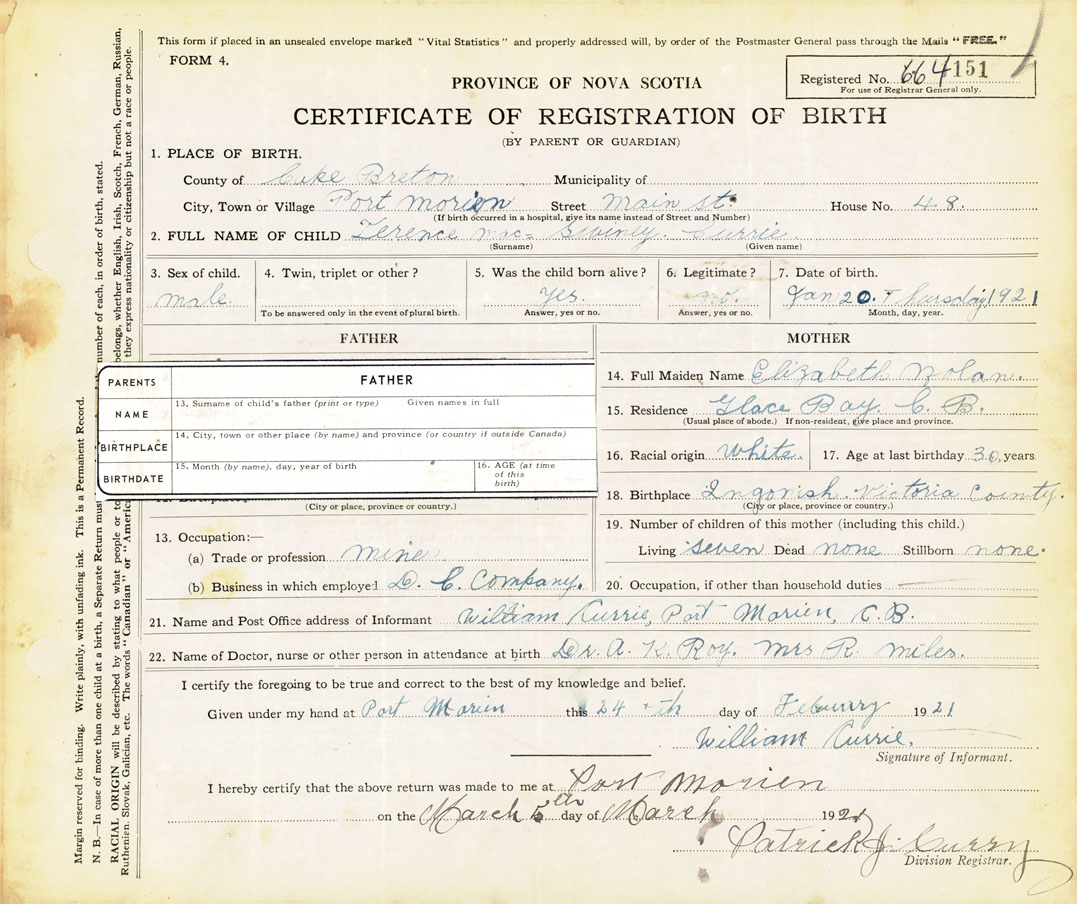 This form if placed in an unsealed envelope marked "Vital Statistics" and properly addressed will, by order of the Postmaster General pass through the Mails "FREE."
FORM 4.
Registered No. 664 151
For use of Registrar General only.
PROVINCE OF NOVA SCOTIA
CERTIFICATE OF REGISTRATION OF BIRTH
(BY PARENT OR GUARDIAN)
1. PLACE OF BIRTH.
County of Cape Breton Municipality of
City, Town or Village Port Morien Street Main st. House No. 48.
(If birth occurred in a hospital, give its name instead of Street and Number)
2. FULL NAME OF CHILD Terence mac= Swiney. Currie.
(Surname) (Given name)
3. Sex of child. 4. Twin, triplet or other? 5. Was the child born alive? 6. Legitimate? 7. Date of birth.
male. Yes. no. Jan 20. Thursday 1921
To be answered only in the event of plural birth. Answer, yes or no. Answer, yes or no. Month, day, year.
FATHER MOTHER
PARENTS FATHER
NAME 13. Surname of child's father (print or type) Given names in full
BIRTHPLACE 14. City, town or other place (by name) and province (or country if outside Canada)
BIRTHDATE 15. Month (by name), day, year of birth 16. AGE (at time of this birth)
(City or place, province or country.)
13. Occupation:—
(a) Trade or profession mine
(b) Business in which employed D. C. Company.
14. Full Maiden Name Elizabeth Nolan.
15. Residence Glace Bay. C. B.
(Usual place of abode.) If non-resident, give place and province.
16. Racial origin White. 17. Age at last birthday 30, years
18. Birthplace Ingonish. Victoria County.
(City or place, province or country.)
19. Number of children of this mother (including this child.)
Living seven Dead none Stillborn none.
20. Occupation, if other than household duties
21. Name and Post Office address of Informant William Currie, Port Morien, C.B.
22. Name of Doctor, nurse or other person in attendance at birth Dr. A. K. Roy. Mrs R. Miles.
I certify the foregoing to be true and correct to the best of my knowledge and belief.
Given under my hand at Port Morien this 24 th day of Feburry 1921
William Currie.
Signature of Informant.
I hereby certify that the above return was made to me at Port Morien
on the March 5th day of March 1921
Patrick J. Curry
Division Registrar.
Margin reserved for binding. Write plainly, with unfading ink. This is a Permanent Record.
N. B.—In case of more than one child at a birth, a Separate Return must number of each, in order of birth, stated.
RACIAL ORIGIN will be described by stating to what people or to belongs, whether English, Irish, Scotch, French, German, Russian,
Ruthenian, Slovak, Galician, etc. The words "Canadian" or "America they express nationality or citizenship but not a race or people.